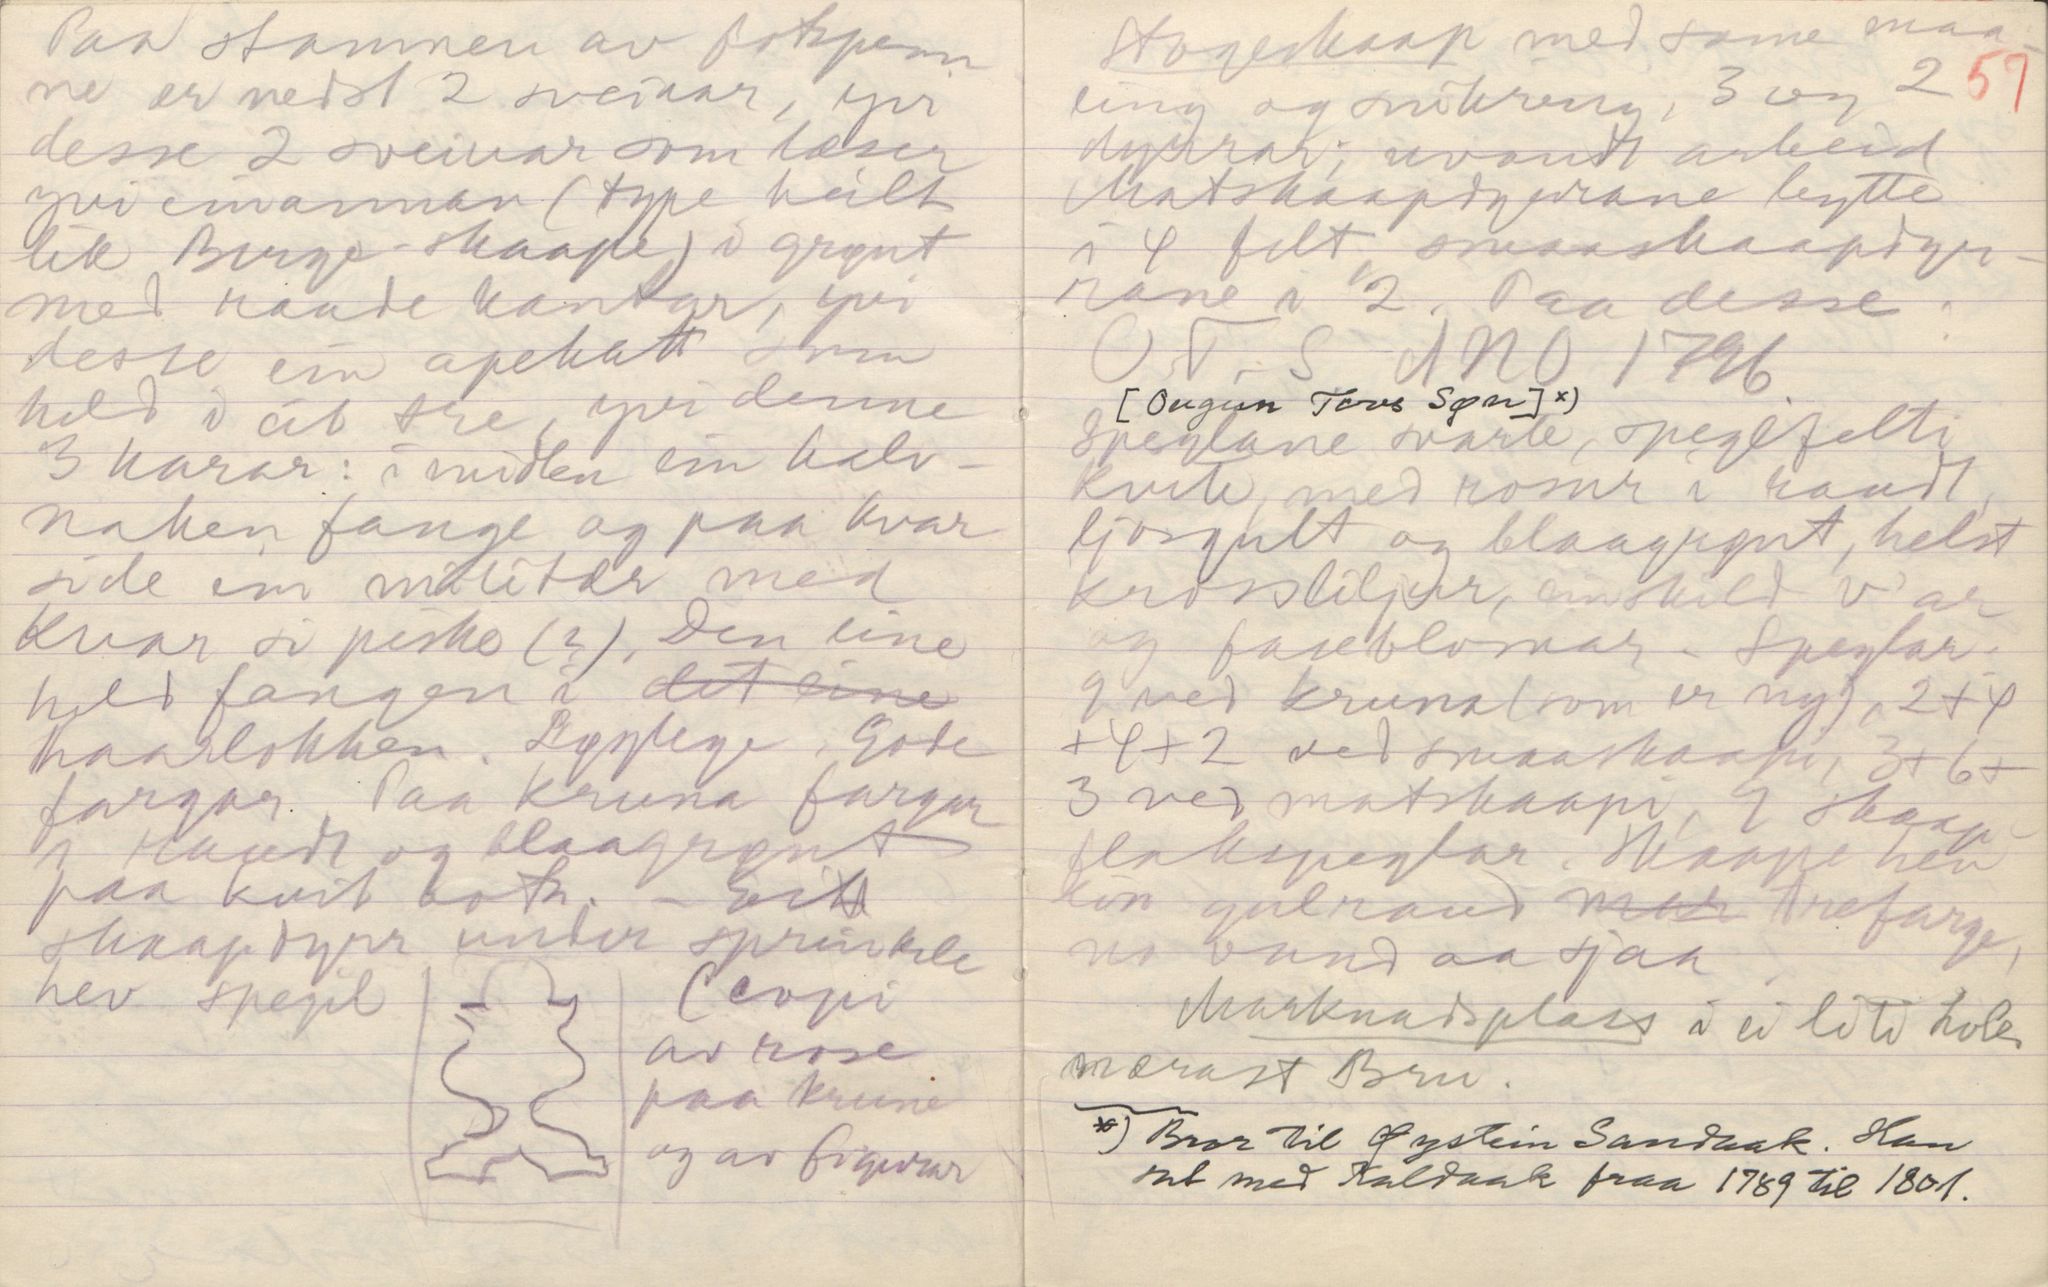 Paa stammen av fotspenn
ne er nedst 2 sveivar, yvi
desse 2 sveivar som læser
yvi einannan (type heilt
lik Burge-skaape) i grønt
med raude kantar, yvi
desse ein apekatt som
held i eit tre, yvi denne
3 karar: i midten ein halv-
naken fange og paa kvar
side ein militær med
kvar si piske (?). Den eine
held fangen i det eine
haarlokken. Gode
fargar. Paa kruna fargar
i raudt og blaagrønt
paa kvit botn. –
skaapdyrr under sprinkle
hev spegil
(copi
av rose
paa krune
og av figurar
59
Stogeskaap med same maa-
ling og snikring, 3 og 2
dyrrar; arbeid
Matskaapdyrrane bytte
i 4 felt, smaaskaapdyr-
rane i 2. Paa desse:
O.T.S ANO 1796
[Ougun Tovs Søn] *)
Speglane svarte, spegilfelti
kvite, med rosur i raudt,
ljosgult og blaagrønt, helst
krossliljur, einskild
og faseblomar. Speglar:
9 ved kruna (som er ny), 2+4
+4+2 ved smaaskaapi, 3+6+
3 ved matskaapi, 9 skaap-
flakspeglar. Skaape hev
ein gulraud trefarge,
no vand aa sjaa
Marknadsplass i ei liti hole
nærast Bru.
*) Bror til Øystein Sandaak. Han
sat med Kaldaak fraa 1789 til 1801.